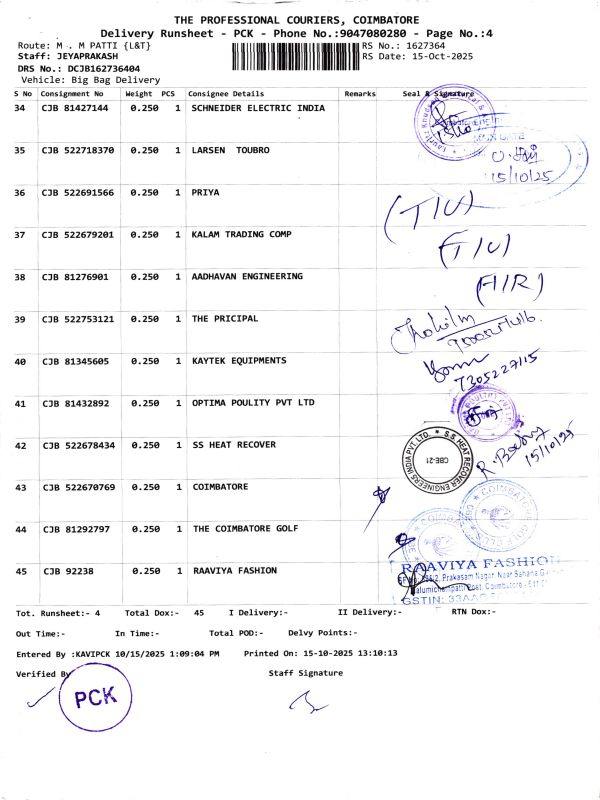 THE PROFESSIONAL COURIERS, COIMBATORE
Delivery Runsheet - PCK - Phone No.:9047080280 - Page No.:4
Route: M . M PATTI {L&T}
RS No.: 1627364
Staff: JEYAPRAKASH
RS Date: 15-Oct-2025
DRS No.: DCJB162736404
Vehicle: Big Bag Delivery
S No Consignment No Weight PCS Consignee Details Remarks Seal & Signature
34 CJB 81427144 0.250 1 SCHNEIDER ELECTRIC INDIA
35 CJB 522718370 0.250 1 LARSEN TOUBRO
15/10/25
36 CJB 522691566 0.250 1 PRIYA
(T/U)
37 CJB 522679201 0.250 1 KALAM TRADING COMP
(T/U)
38 CJB 81276901 0.250 1 AADHAVAN ENGINEERING
(A/R)
39 CJB 522753121 0.250 1 THE PRICIPAL
40 CJB 81345605 0.250 1 KAYTEK EQUIPMENTS
7305227115
41 CJB 81432892 0.250 1 OPTIMA POULITY PVT LTD
42 CJB 522678434 0.250 1 SS HEAT RECOVER
S.S. HEAT RECOVER ENGINEERS INDIA PVT. LTD.
CBE-21
15/10/25
43 CJB 522670769 0.250 1 COIMBATORE
COIMBATORE
44 CJB 81292797 0.250 1 THE COIMBATORE GOLF
45 CJB 92238 0.250 1 RAAVIYA FASHION
RAAVIYA FASHION
Prakasam Nagar, Near Sahana
Post, Coimbatore -
GSTIN: 33AA
Tot. Runsheet:- 4 Total Dox:- 45 I Delivery:- II Delivery:- RTN Dox:-
Out Time:- In Time:- Total POD:- Delvy Points:-
Entered By :KAVIPCK 10/15/2025 1:09:04 PM Printed On: 15-10-2025 13:10:13
Verified By Staff Signature
PCK